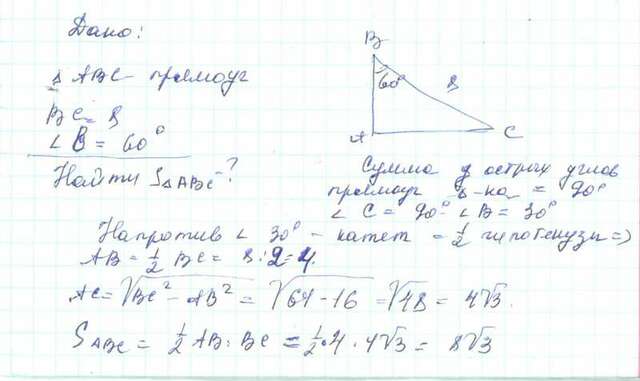 Дано:
Δ ABC - прямоуг
BC = 8
∠ B = 60°
Найти S△ABC - ?
B
60°
8
A
C
Сумма острых углов
прямоуг Δ-ка = 90°
∠ C = 90° - ∠ B = 30°
Напротив ∠ 30° - катет = 1/2 гипотенузы =>
AB = 1/2 BC = 8 : 2 = 4.
AC = √BC² - AB² = √64 - 16 = √48 = 4√3.
S ABC = 1/2 AB · BC = 1/2 · 4 · 4√3 = 8√3